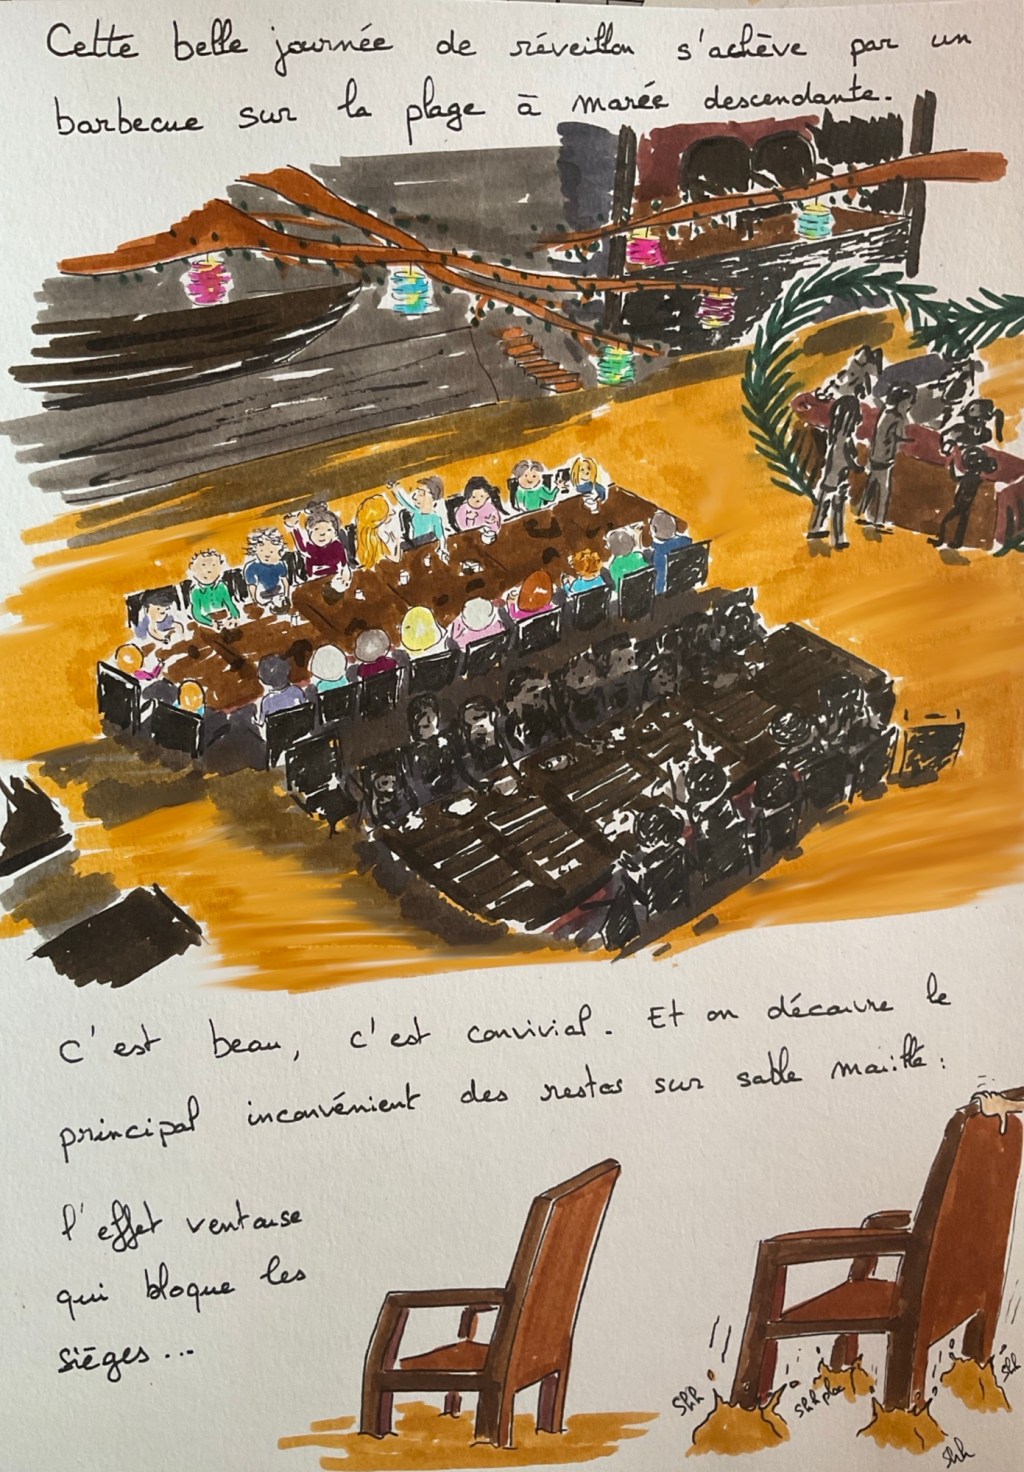 Cette belle journée de réveillon s'achève par un
barbecue sur la plage à marée descendante.
C'est beau, c'est convivial. Et on découvre le
principal inconvénient des restos sur sable mouillé :
l'effet ventouse
qui bloque les
sièges...
Shh
Shhploc
Shh
Shh